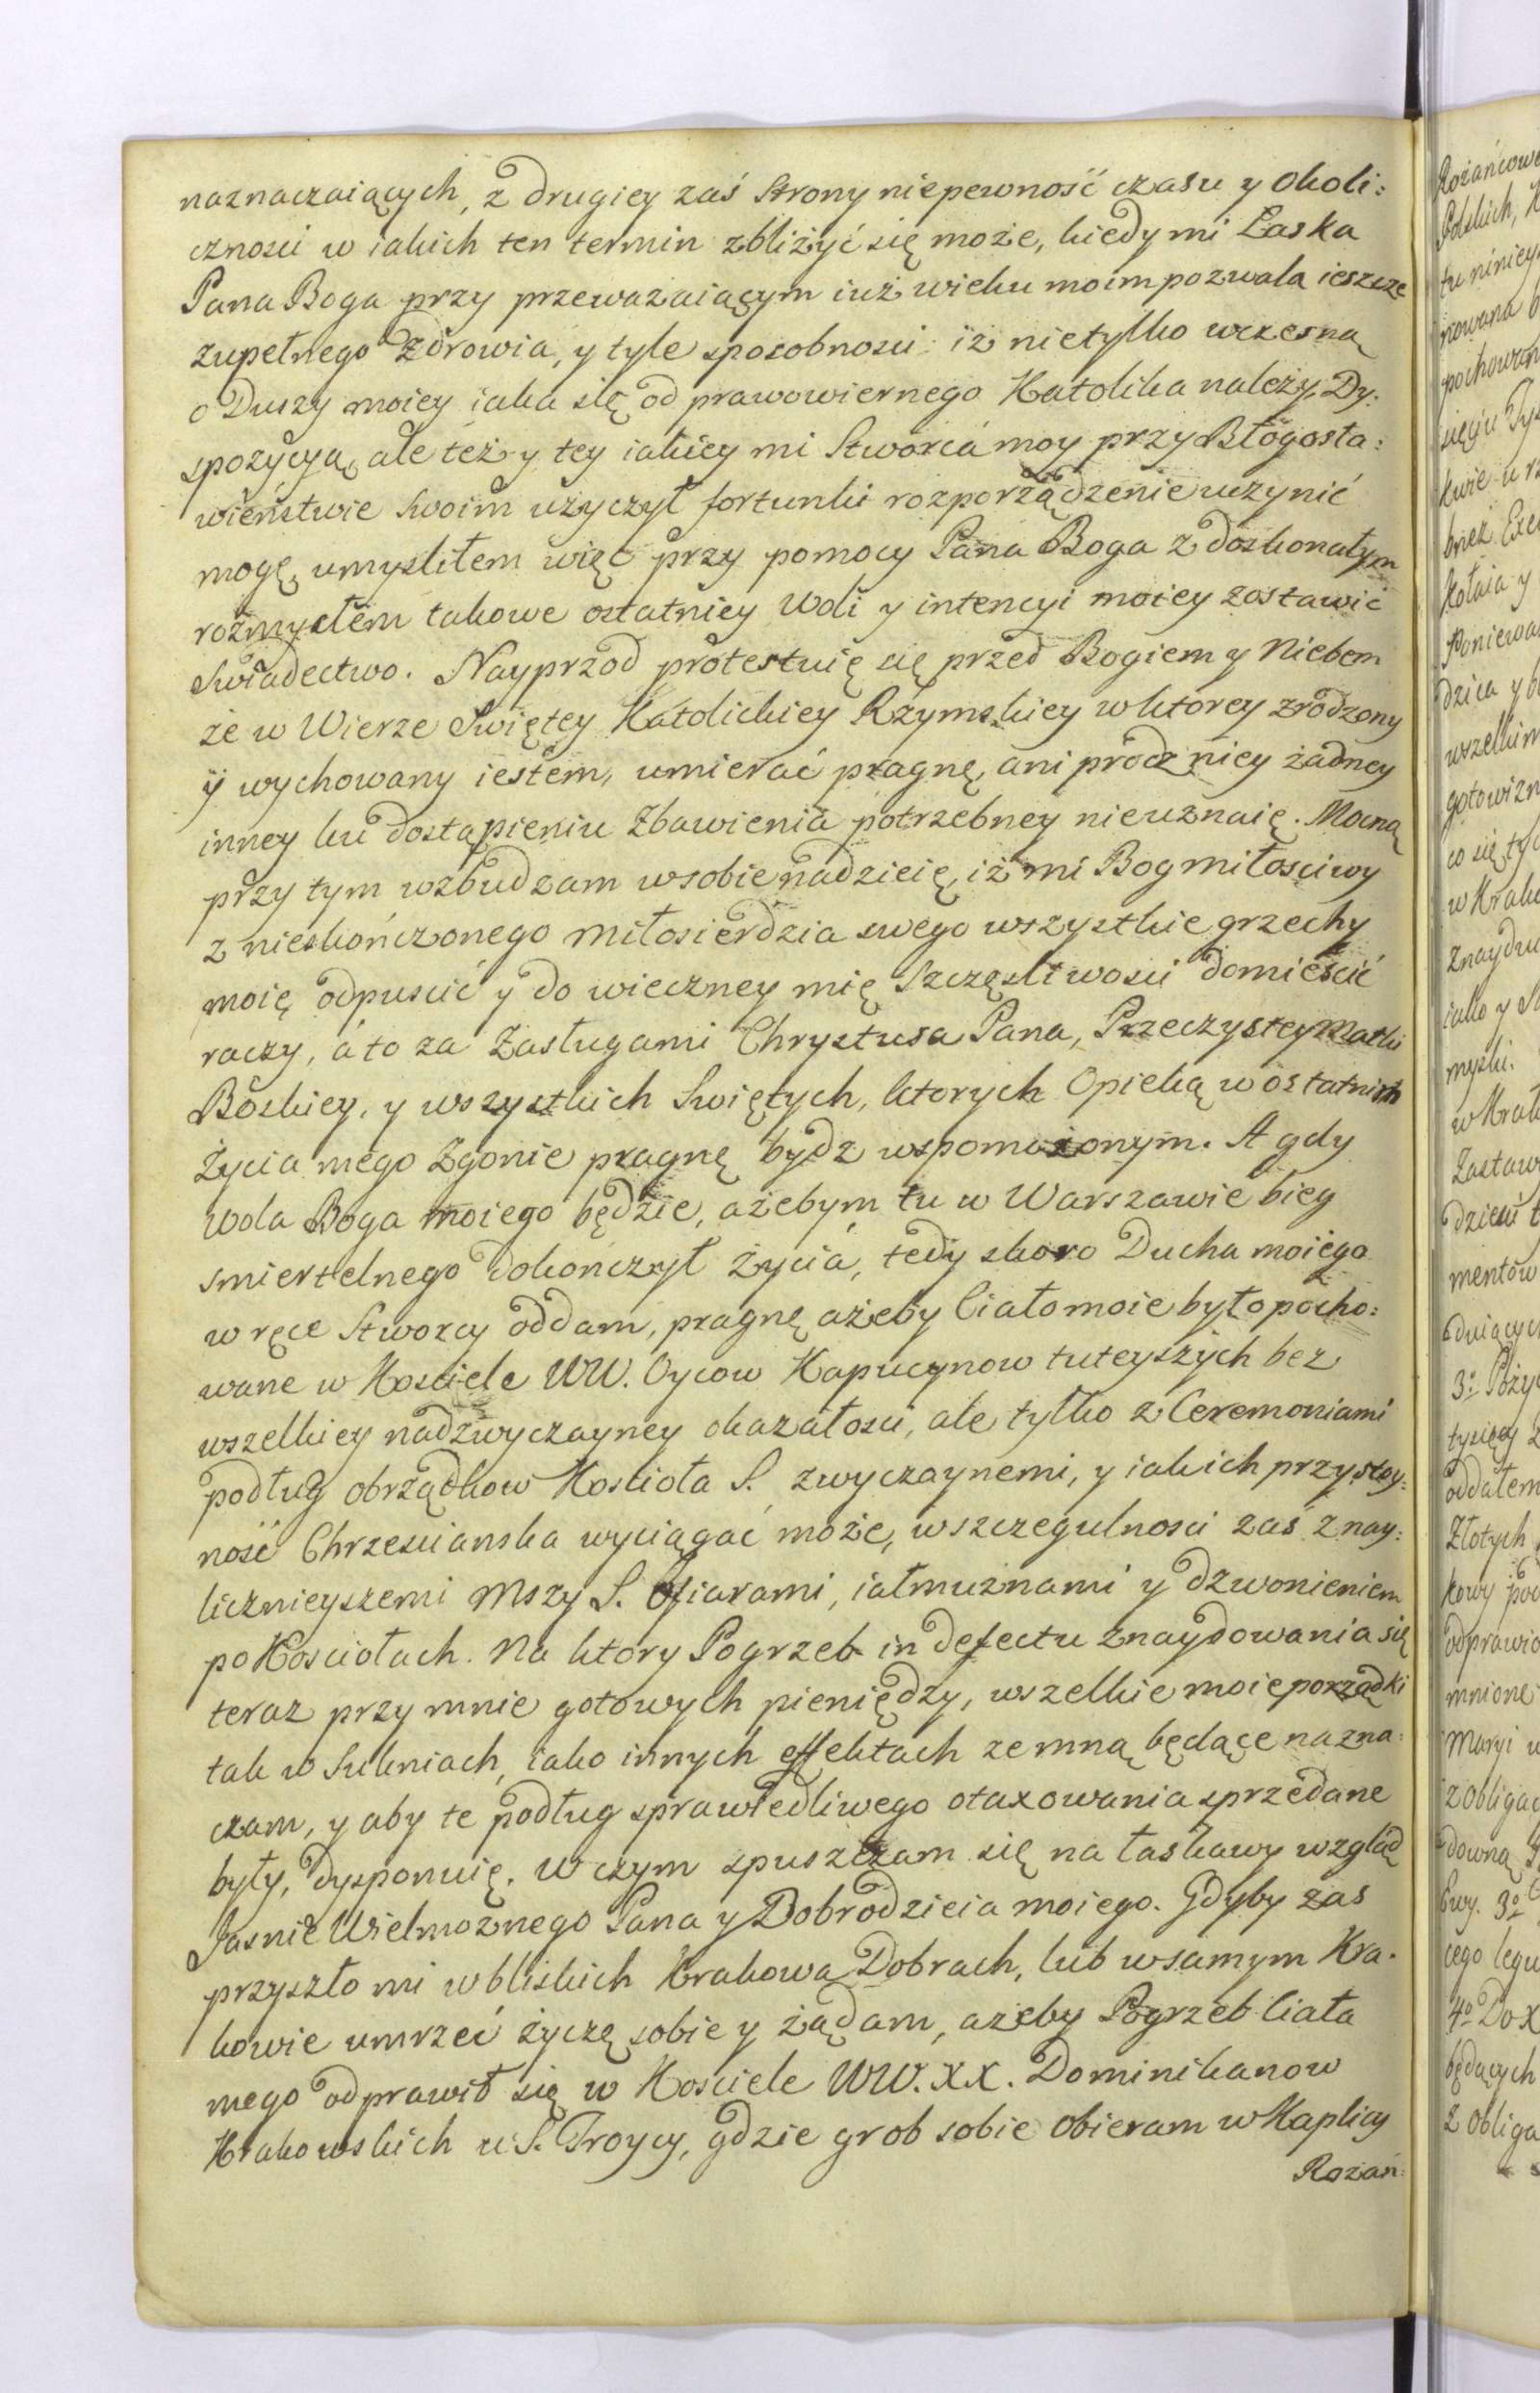 naznaczaiących, z drugiey zaś Strony niepewność czasu y Okoli:
cznosci w iakich ten termin zbliżyć się może, kiedy mi Łaska
Pana Boga przy przeważaiącym iuż wieku moim pozwala ieszcze
zupełnego zdrowia, y tyle sposobnosci iż nietylko wczesną
o Duszy moiey iaka się od prawowiernego Katolika należy, Dy:
spozycyą, ale też y tey iakiey mi Stworca moy przy Błogosła:
wieństwie Swoim użyczył fortunki rozporządzenie uczynić
mogę, umyslitem więc przy pomocy Pana Boga z doskonałym
rozmysłem takowe ostatniey Woli y intencyi moiey zostawić
Swiadectwo. Nayprzod protestuię się przed Bogiem y Niebem
że w Wierze Swiętey Katolickiey Rzymskiey w ktorey zrodzony
ÿ wychowany iestem, umierać pragnę, ani procz niey żadney
inney ku dostąpieniu Zbawienia potrzebney nieuznaię. Mocną
przy tym wzbudzam w sobie nadzieię, iż mi Bog miłosciwy
z nieskończonego miłosierdzia swego wszystkie grzechy
moię odpuscić y do wieczney mię Szczęsliwosci domieścić
raczy, á to za Zasługami Chrystusa Pana, Przeczystey Matki
Boskiey, y wszystkich Swiętych, ktorych Opieką w ostatnim
Życia mego Zgonie pragnę bydz wspomożonym. A gdy
wola Boga moiego będzie, ażebym tu w Warszawie bieg
smiertelnego dokończył życia, tedy skoro Ducha moiego
w ręce Stworcy oddam, pragnę ażeby Ciało moie było pocho:
wane w Kosciele WW. Oycow Kapucynow tuteyszych bez
wszelkiey nadzwyczayney okazałosci, ale tylko z Ceremoniami
podług obrządkow Kosciola S. zwyczaynemi, y iakich przystoy:
ność Chrzescianska wyciągać może, w szczegulnosci zaś z nay:
licznieyszemi Mszy S. Ofiarami, iałmużnami y dzwonieniem
po Kosciołach. Na ktory Pogrzeb in defectu znaydowania się
teraz przy mnie gotowych pieniędzy, wszelkie moie porządki
tak w Sukniach, iako innych effektach ze mną będące nazna:
czam, y aby te podług sprawiedliwego otaxowania sprzedane
były, dysponuię. W czym spuszczam się na łaskawy wzgląd
Jasnie Wielmożnego Pana y Dobrodzieia moiego. Gdyby zas
przyszło mi w bliskich Krakowa Dobrach, lub w samym Kra:
kowie umrzeć życzę sobie y żądam, ażeby Pogrzeb Ciała
mego odprawił się w Kosciele WW. XX. Dominikanow
Krakowskich u S. Troycy, gdzie grob sobie obieram w Kaplicy
Rożań: